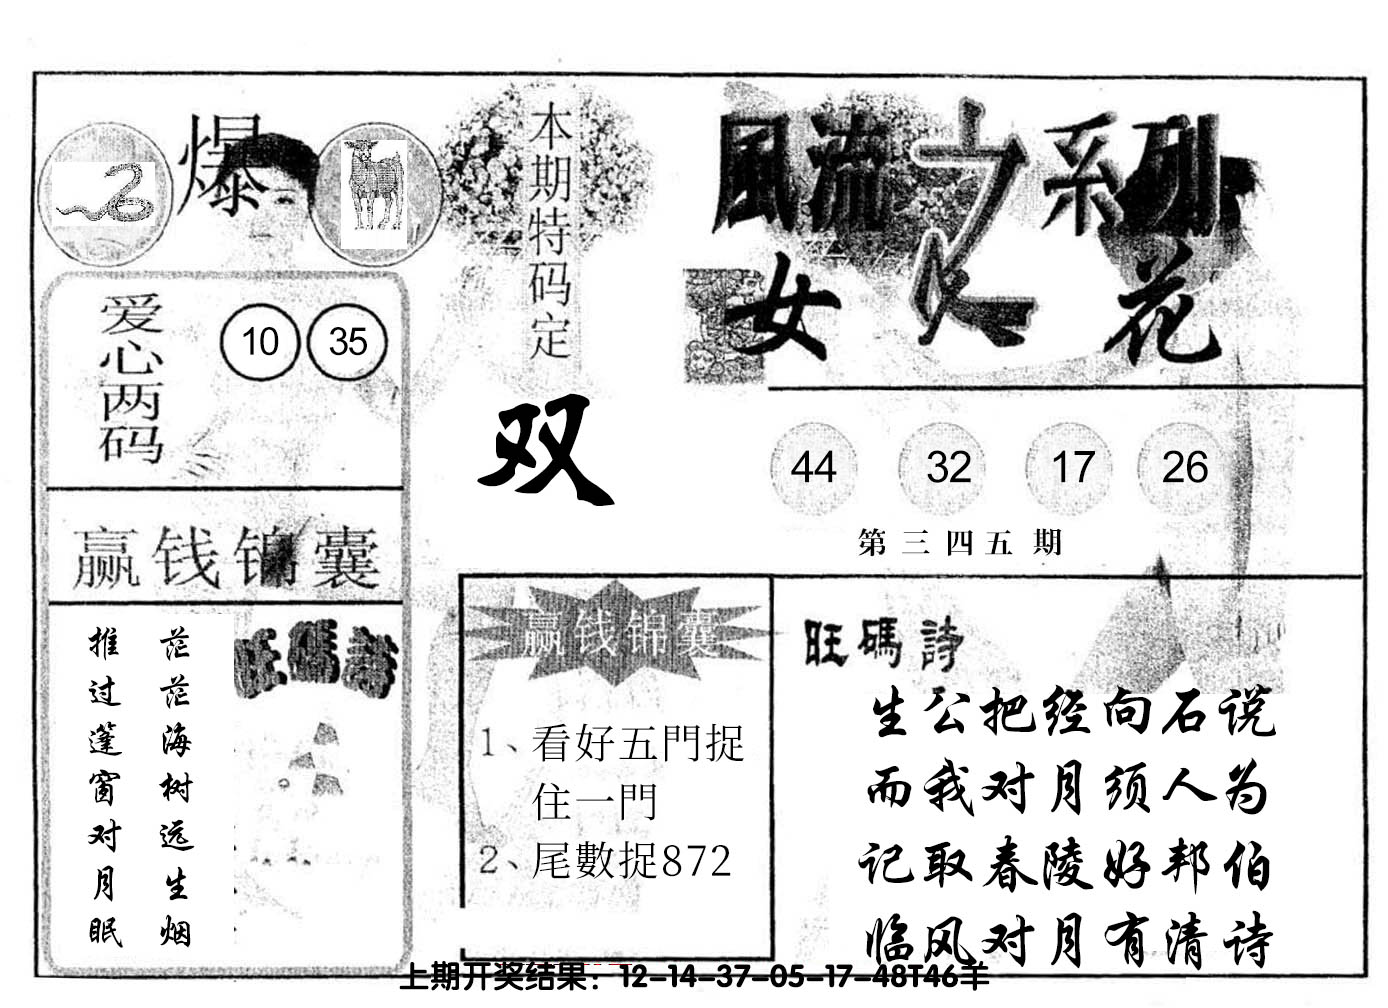 爆
本期特码定
双
風流之系列
女人花
爱心两码
10 35
44 32 17 26
第三四五期
赢钱锦囊
茫茫海树远生烟
推过蓬窗对月眠
旺碼詩
赢钱锦囊
1、看好五門捉
住一門
2、尾數捉872
旺碼詩
生公把经向石说
而我对月须人为
记取春陵好邦伯
临风对月有清诗
上期开奖结果：12-14-37-05-17-48T46羊